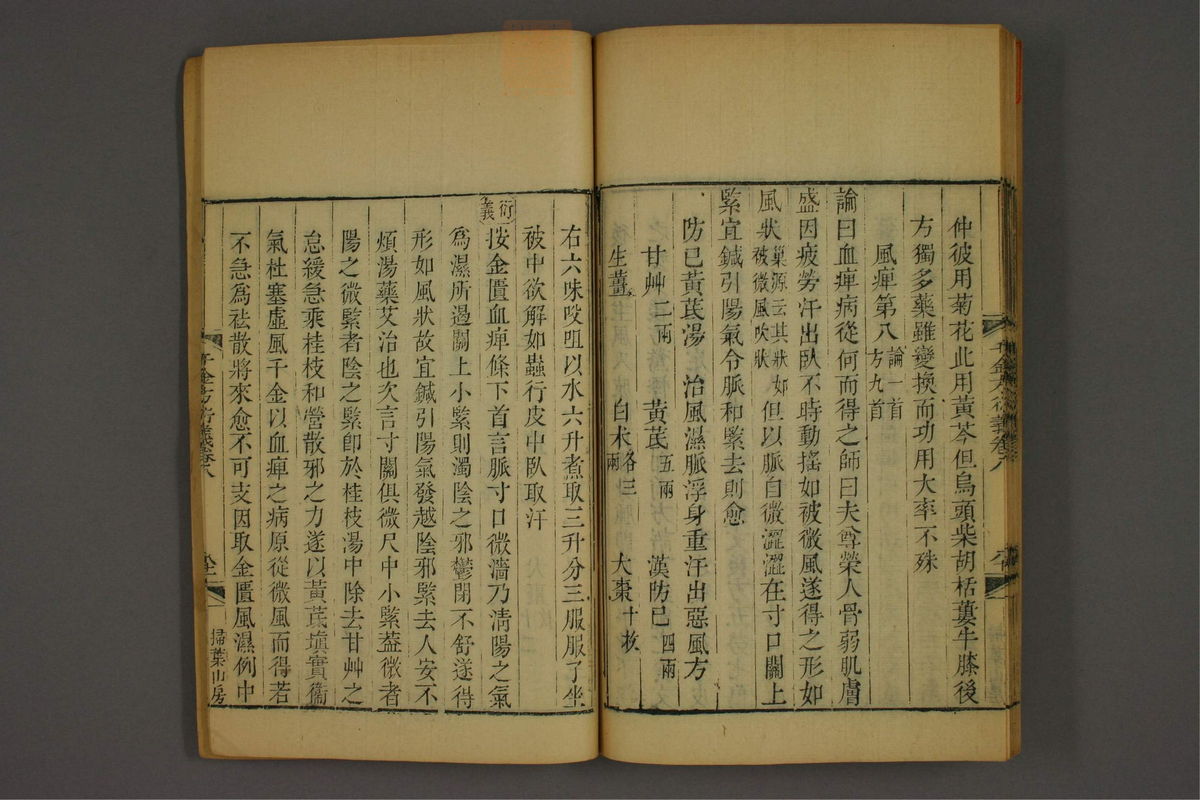 仲彼用菊花此用黃芩但烏頭柴胡栝蔞牛膝後
方獨多藥雖變換而功用大率不殊
風痺第八論一首方九首
論曰血痺病從何而得之師曰夫尊榮人骨弱肌膚
盛因疲勞汗出臥不時動搖如被微風遂得之形如
風狀巢源云其狀如被微風吹狀但以脈自微澀澀在寸口關上
緊宜鍼引陽氣令脈和緊去則愈
防已黃芪湯 治風濕脈浮身重汗出惡風方
甘艸二兩 黃芪五兩 漢防已四兩
生薑 白朮各三兩 大棗十枚
右六味㕮咀以水六升煮取三升分三服服了坐
被中欲解如蟲行皮中臥取汗
衍義按金匱血痺條下首言脈寸口微濇乃淸陽之氣
為濕所遏關上小緊則濁陰之邪鬱閉不舒遂得
形如風狀故宜鍼引陽氣發越陰邪緊去人安不
煩湯藥艾治也次言寸關俱微尺中小緊葢微者
陽之微緊者陰之緊卽於桂枝湯中除去甘艸之
怠緩急乘桂枝和營散邪之力遂以黃芪塡實衞
氣杜塞虛風千金以血痺之病原從微風而得若
不急為祛散將來愈不可支因取金匱風濕例中
千金方衍義卷八
掃葉山房